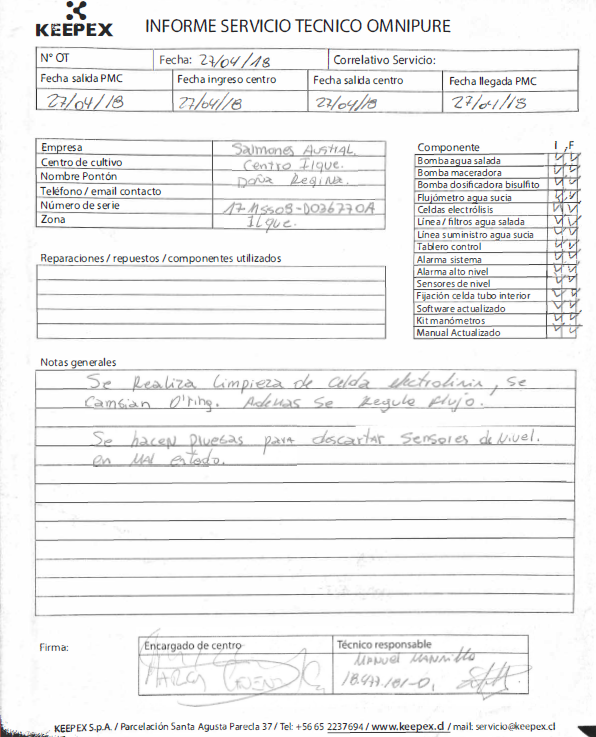 KEEPEX
INFORME SERVICIO TECNICO OMNIPURE
N° OT Fecha: 27/04/18 Correlativo Servicio:
Fecha salida PMC Fecha ingreso centro Fecha salida centro Fecha llegada PMC
27/04/18 27/04/18 27/04/18 27/04/18
Empresa Salmones Austral.
Centro de cultivo Centro Ilque.
Nombre Pontón Doña Regina.
Teléfono / email contacto
Número de serie 17-11550B-D036770A
Zona Ilque.
Componente I F
Bomba agua salada
Bomba maceradora
Bomba dosificadora bisulfito
Flujómetro agua sucia
Celdas electrólisis
Línea / filtros agua salada
Línea suministro agua sucia
Tablero control
Alarma sistema
Alarma alto nivel
Sensores de nivel
Fijación celda tubo interior
Software actualizado
Kit manómetros
Manual Actualizado
Reparaciones / repuestos / componentes utilizados
Notas generales
Se Realiza Limpieza de Celda , Se
Cambian O'ring. Ademas Se Regula flujo.
Se hacen pruebas para descartar Sensores de Nivel.
en mal estado.
Firma:
Encargado de centro
Técnico responsable
Manuel
KEEPEX S.p.A. / Parcelación Santa Agusta Parecla 37 / Tel: +56 65 2237694 / www.keepex.cl / mail: servicio@keepex.cl